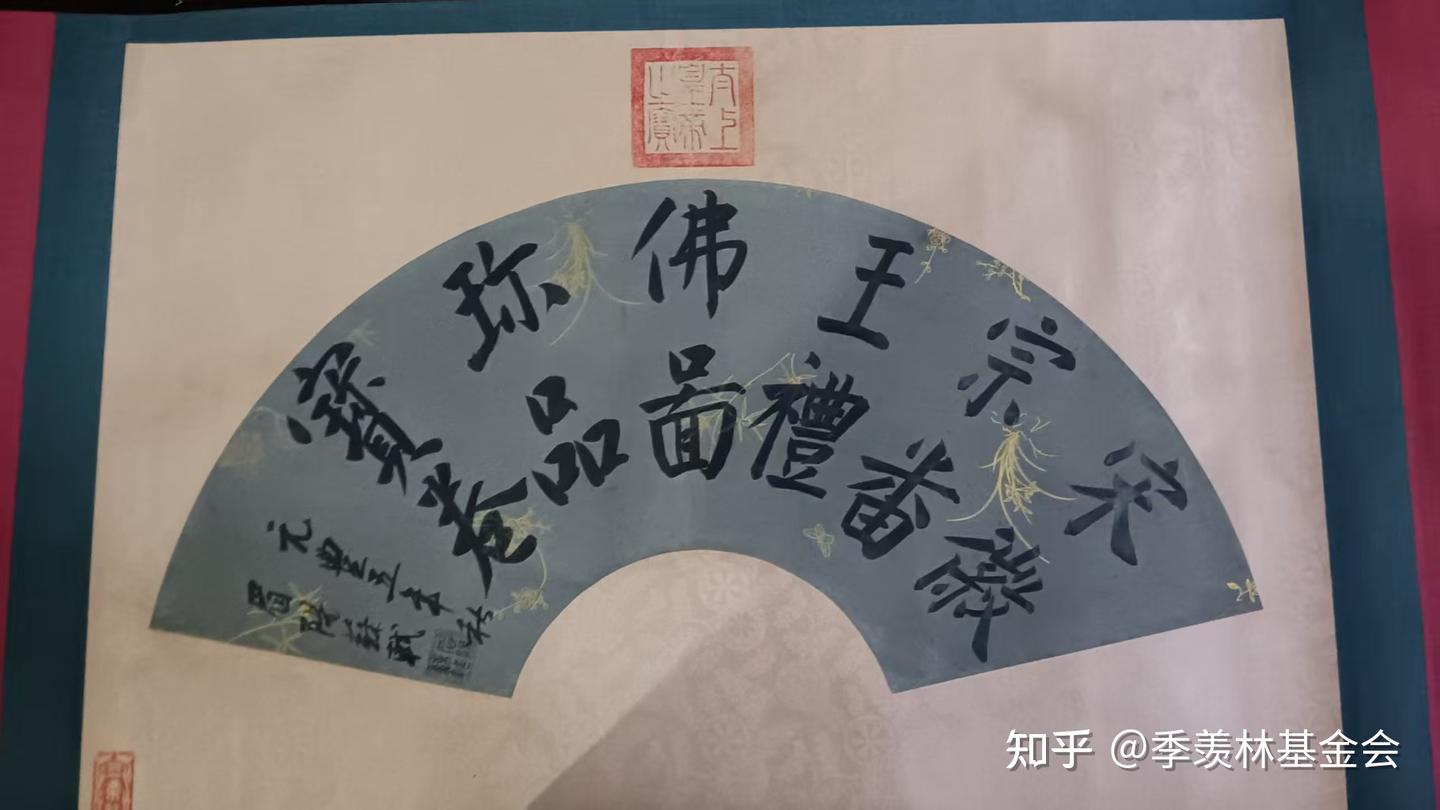 太上皇帝之寶
宋
宗番
王禮
佛啚
珎品
寳卷
元豐五年秋
眉陽蘇軾
知乎 @季羡林基金会